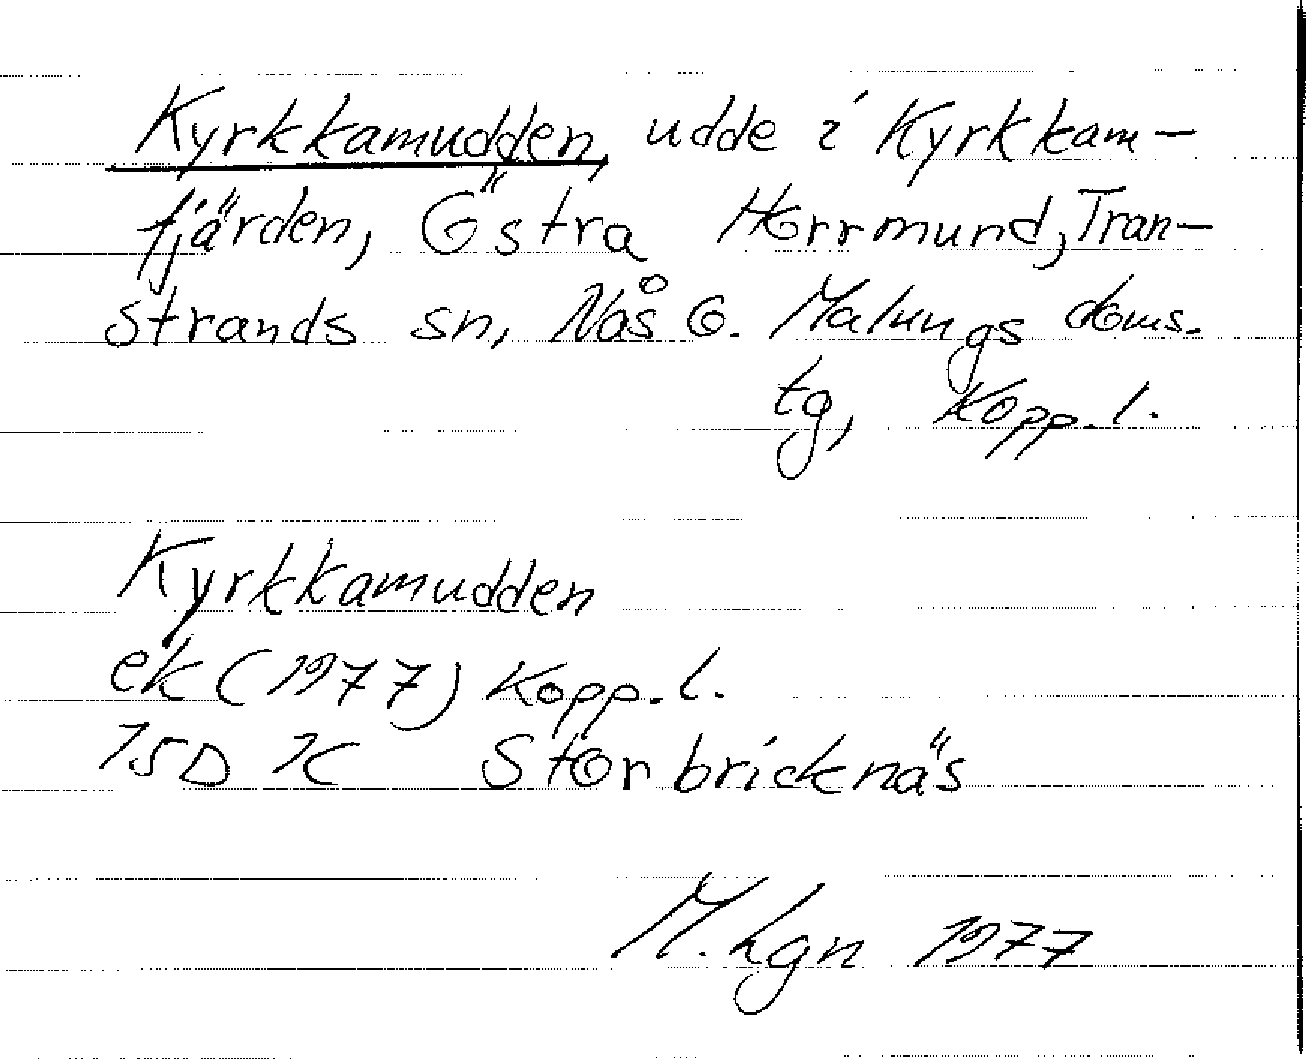 Kyrkkamudden, udde i Kyrkkam-
fjärden, Östra Horrmund, Tran-
strands sn, Nås o. Malungs doms.
tg, Kopp. l.
Kyrkkamudden
ek (1977) Kopp. l.
15D IC Storbricknäs
M. Lgn 1977